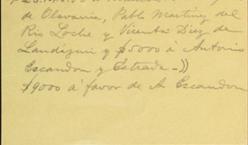 de Olavarria, Pablo Martinez del
Rio Loche y Vicenta Diez de
Landiguri y $5000 à Antonio
Escandon y Estrada —))
$9000 á favor de A. Escandon